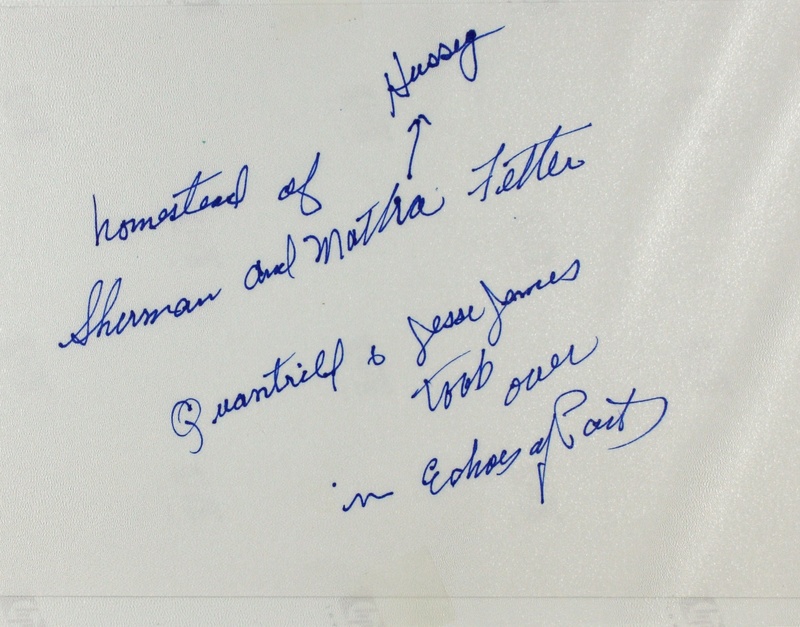 Hussey
homestead of
Sherman and Martha Fetter
Quantrill & Jesse James
took over
in Echoes of Past